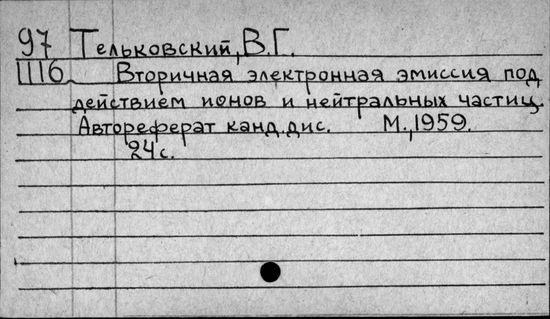 97 Тельковский, В.Г.
1116 Вторичная электронная эмиссия под
действием ионов и нейтральных частиц.
Автореферат канд. дис. М., 1959.
24 с.